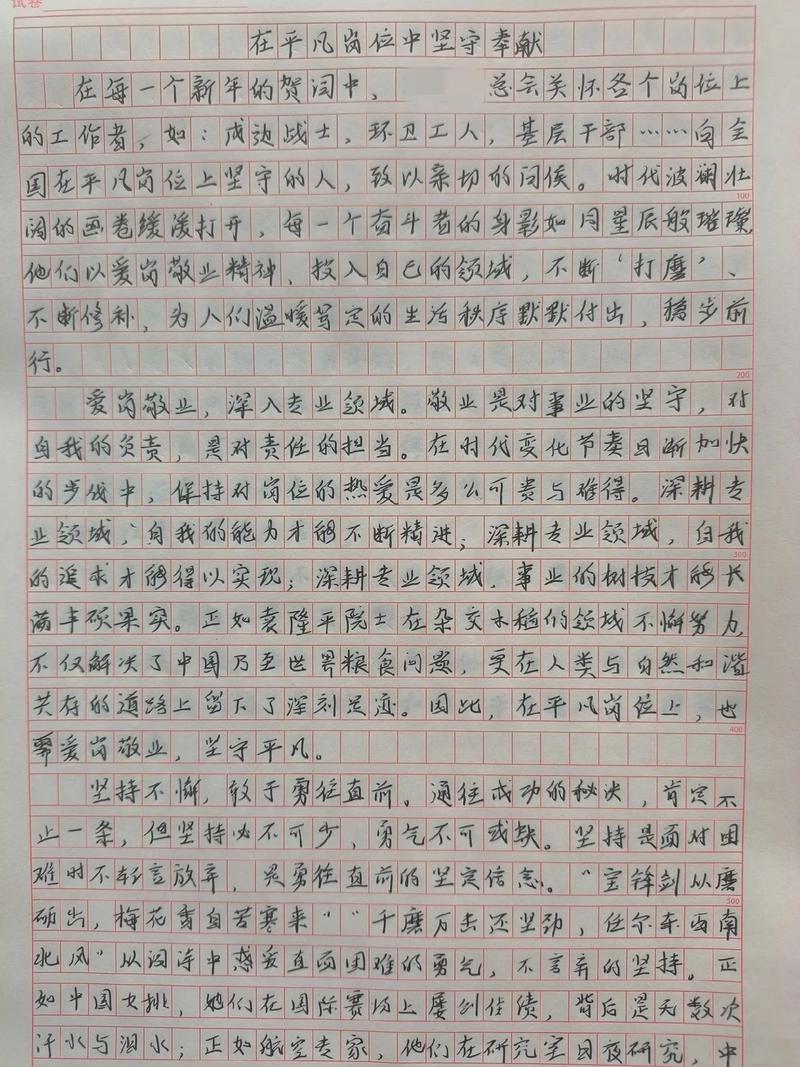 试卷
在平凡岗位中坚守奉献
在每一个新年的贺词中， 总会关怀各个岗位上
的工作者，如：戍边战士、环卫工人，基层干部……向全
国在平凡岗位上坚守的人，致以亲切的问候。时代波澜壮
100
阔的画卷缓缓打开，每一个奋斗者的身影如同星辰般璀璨，
他们以爱岗敬业精神、投入自己的领域，不断‘打磨’、
不断修补，为人们温暖笃定的生活秩序默默付出，稳步前
行。
200
爱岗敬业，深入专业领域。敬业是对事业的坚守，对
自我的负责，是对责任的担当。在时代变化节奏日渐加快
的步伐中，保持对岗位的热爱是多么可贵与难得。深耕专
业领域，自我的能力才能不断精进；深耕专业领域，自我
300
的追求才能得以实现；深耕专业领域，事业的树枝才能长
满丰硕果实。正如袁隆平院士在杂交水稻的领域不懈努力，
不仅解决了中国乃至世界粮食问题，更在人类与自然和谐
共存的道路上留下了深刻足迹。因此，在平凡岗位上，也
400
需爱岗敬业，坚守平凡。
坚持不懈，敢于勇往直前。通往成功的秘决，肯定不
止一条，但坚持必不可少，勇气不可或缺。坚持是面对困
难时不轻言放弃，是勇往直前的坚定信念。“宝锋剑从磨
500
砺出，梅花香自苦寒来”“千磨万击还坚劲，任尔东西南
北风”从词诗中感受直面困难的勇气，不言弃的坚持。正
如中国女排，她们在国际赛场上屡创佳绩，背后是无数次
汗水与泪水；正如航空专家，他们在研究室日夜研究，中